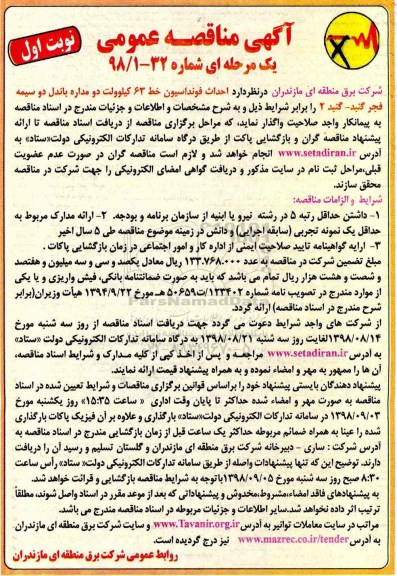 نوبت اول
آگهی مناقصه عمومی
یک مرحله ای شماره ۳۲-۹۸/۱
شرکت برق منطقه ای مازندران درنظردارد احداث فونداسیون خط ۶۳ کیلوولت دو مداره باندل دو سیمه
فجر گنبد- گنبد ۲ را برابر شرایط ذیل و به شرح مشخصات و اطلاعات و جزئیات مندرج در اسناد مناقصه
به پیمانکار واجد صلاحیت واگذار نماید، که مراحل برگزاری مناقصه از دریافت اسناد مناقصه تا ارائه
پیشنهاد مناقصه گران و بازگشایی پاکت از طریق درگاه سامانه تدارکات الکترونیکی دولت«ستاد» به
آدرس www.setadiran.ir انجام خواهد شد و لازم است مناقصه گران در صورت عدم عضویت
قبلی،مراحل ثبت نام در سایت مذکور و دریافت گواهی امضای الکترونیکی را جهت شرکت در مناقصه
محقق سازند.
شرایط و الزامات مناقصه:
۱- داشتن حداقل رتبه ۵ در رشته نیرو یا ابنیه از سازمان برنامه و بودجه. ۲- ارائه مدارک مربوط به
حداقل یک نمونه تجربی (سابقه اجرایی) و دانش در زمینه موضوع مناقصه طی ۵ سال اخیر
۳- ارایه گواهینامه تایید صلاحیت ایمنی از اداره کار و امور اجتماعی در زمان بازگشایی پاکات .
مبلغ تضمین شرکت در مناقصه به عدد ۱۳۳.۷۶۸.۰۰۰ ریال معادل یکصد و سی و سه میلیون و هفتصد
و شصت و هشت هزار ریال تمام می باشد که باید به صورت ضمانتنامه بانکی، فیش واریزی و یا یکی
از موارد مندرج در تصویب نامه شماره ۱۲۳۴۰۲/ت۵۰۶۵۹ هـ مورخ ۱۳۹۴/۹/۲۲ هیأت وزیران(برابر
شرح مندرج در اسناد مناقصه) ارائه گردد.
از شرکت های واجد شرایط دعوت می گردد جهت دریافت اسناد مناقصه از روز سه شنبه مورخ
۱۳۹۸/۰۸/۱۴ لغایت روز سه شنبه ۱۳۹۸/۰۸/۲۱ به درگاه سامانه تدارکات الکترونیکی دولت «ستاد»
به آدرس www.setadiran.ir مراجعه و پس از اخذ کپی از کلیه مدارک و شرایط اسناد مناقصه،
آن ها را ممهور به مهر و امضاء نموده و به همراه پیشنهاد قیمت ارائه نمایند.
پیشنهاد دهندگان بایستی پیشنهاد خود را براساس قوانین برگزاری مناقصات و شرایط تعیین شده در اسناد
مناقصه به صورت مهر و امضاء شده حداکثر تا پایان وقت اداری « ساعت ۱۵:۳۵» روز یکشنبه مورخ
۱۳۹۸/۰۹/۰۳ در سامانه تدارکات الکترونیکی دولت«ستاد» بارگذاری و علاوه بر آن فیزیک پاکات بارگذاری
شده را عینا به همراه ضمائم مربوطه حداکثر یک ساعت قبل از زمان بازگشایی مندرج در اسناد مناقصه به
آدرس شرکت : ساری - دبیرخانه شرکت برق منطقه ای مازندران و گلستان تسلیم و رسید آن را دریافت
دارند. توضیح این که تنها پیشنهادات واصله از طریق سامانه تدارکات الکترونیکی دولت« ستاد» رأس ساعت
۸:۳۰ صبح روز سه شنبه مورخ ۱۳۹۸/۰۹/۰۵ باتوجه به شرایط مناقصه بازگشایی و قرائت خواهد شد.
به پیشنهادهای فاقد امضاء،مشروط،مخدوش و پیشنهاداتی که بعد از موعد مقرر در اسناد واصل شوند، مطلقاً
ترتیب اثر داده نخواهد شد.سایر اطلاعات و جزئیات مربوطه در اسناد مناقصه مندرج می باشد.
مراتب در سایت معاملات توانیر به آدرس www.Tavanir.org.ir و سایت شرکت برق منطقه ای مازندران
به آدرس www.mazrec.co.ir/tender نیز درج گردیده است.
روابط عمومی شرکت برق منطقه ای مازندران
ParsNamadData